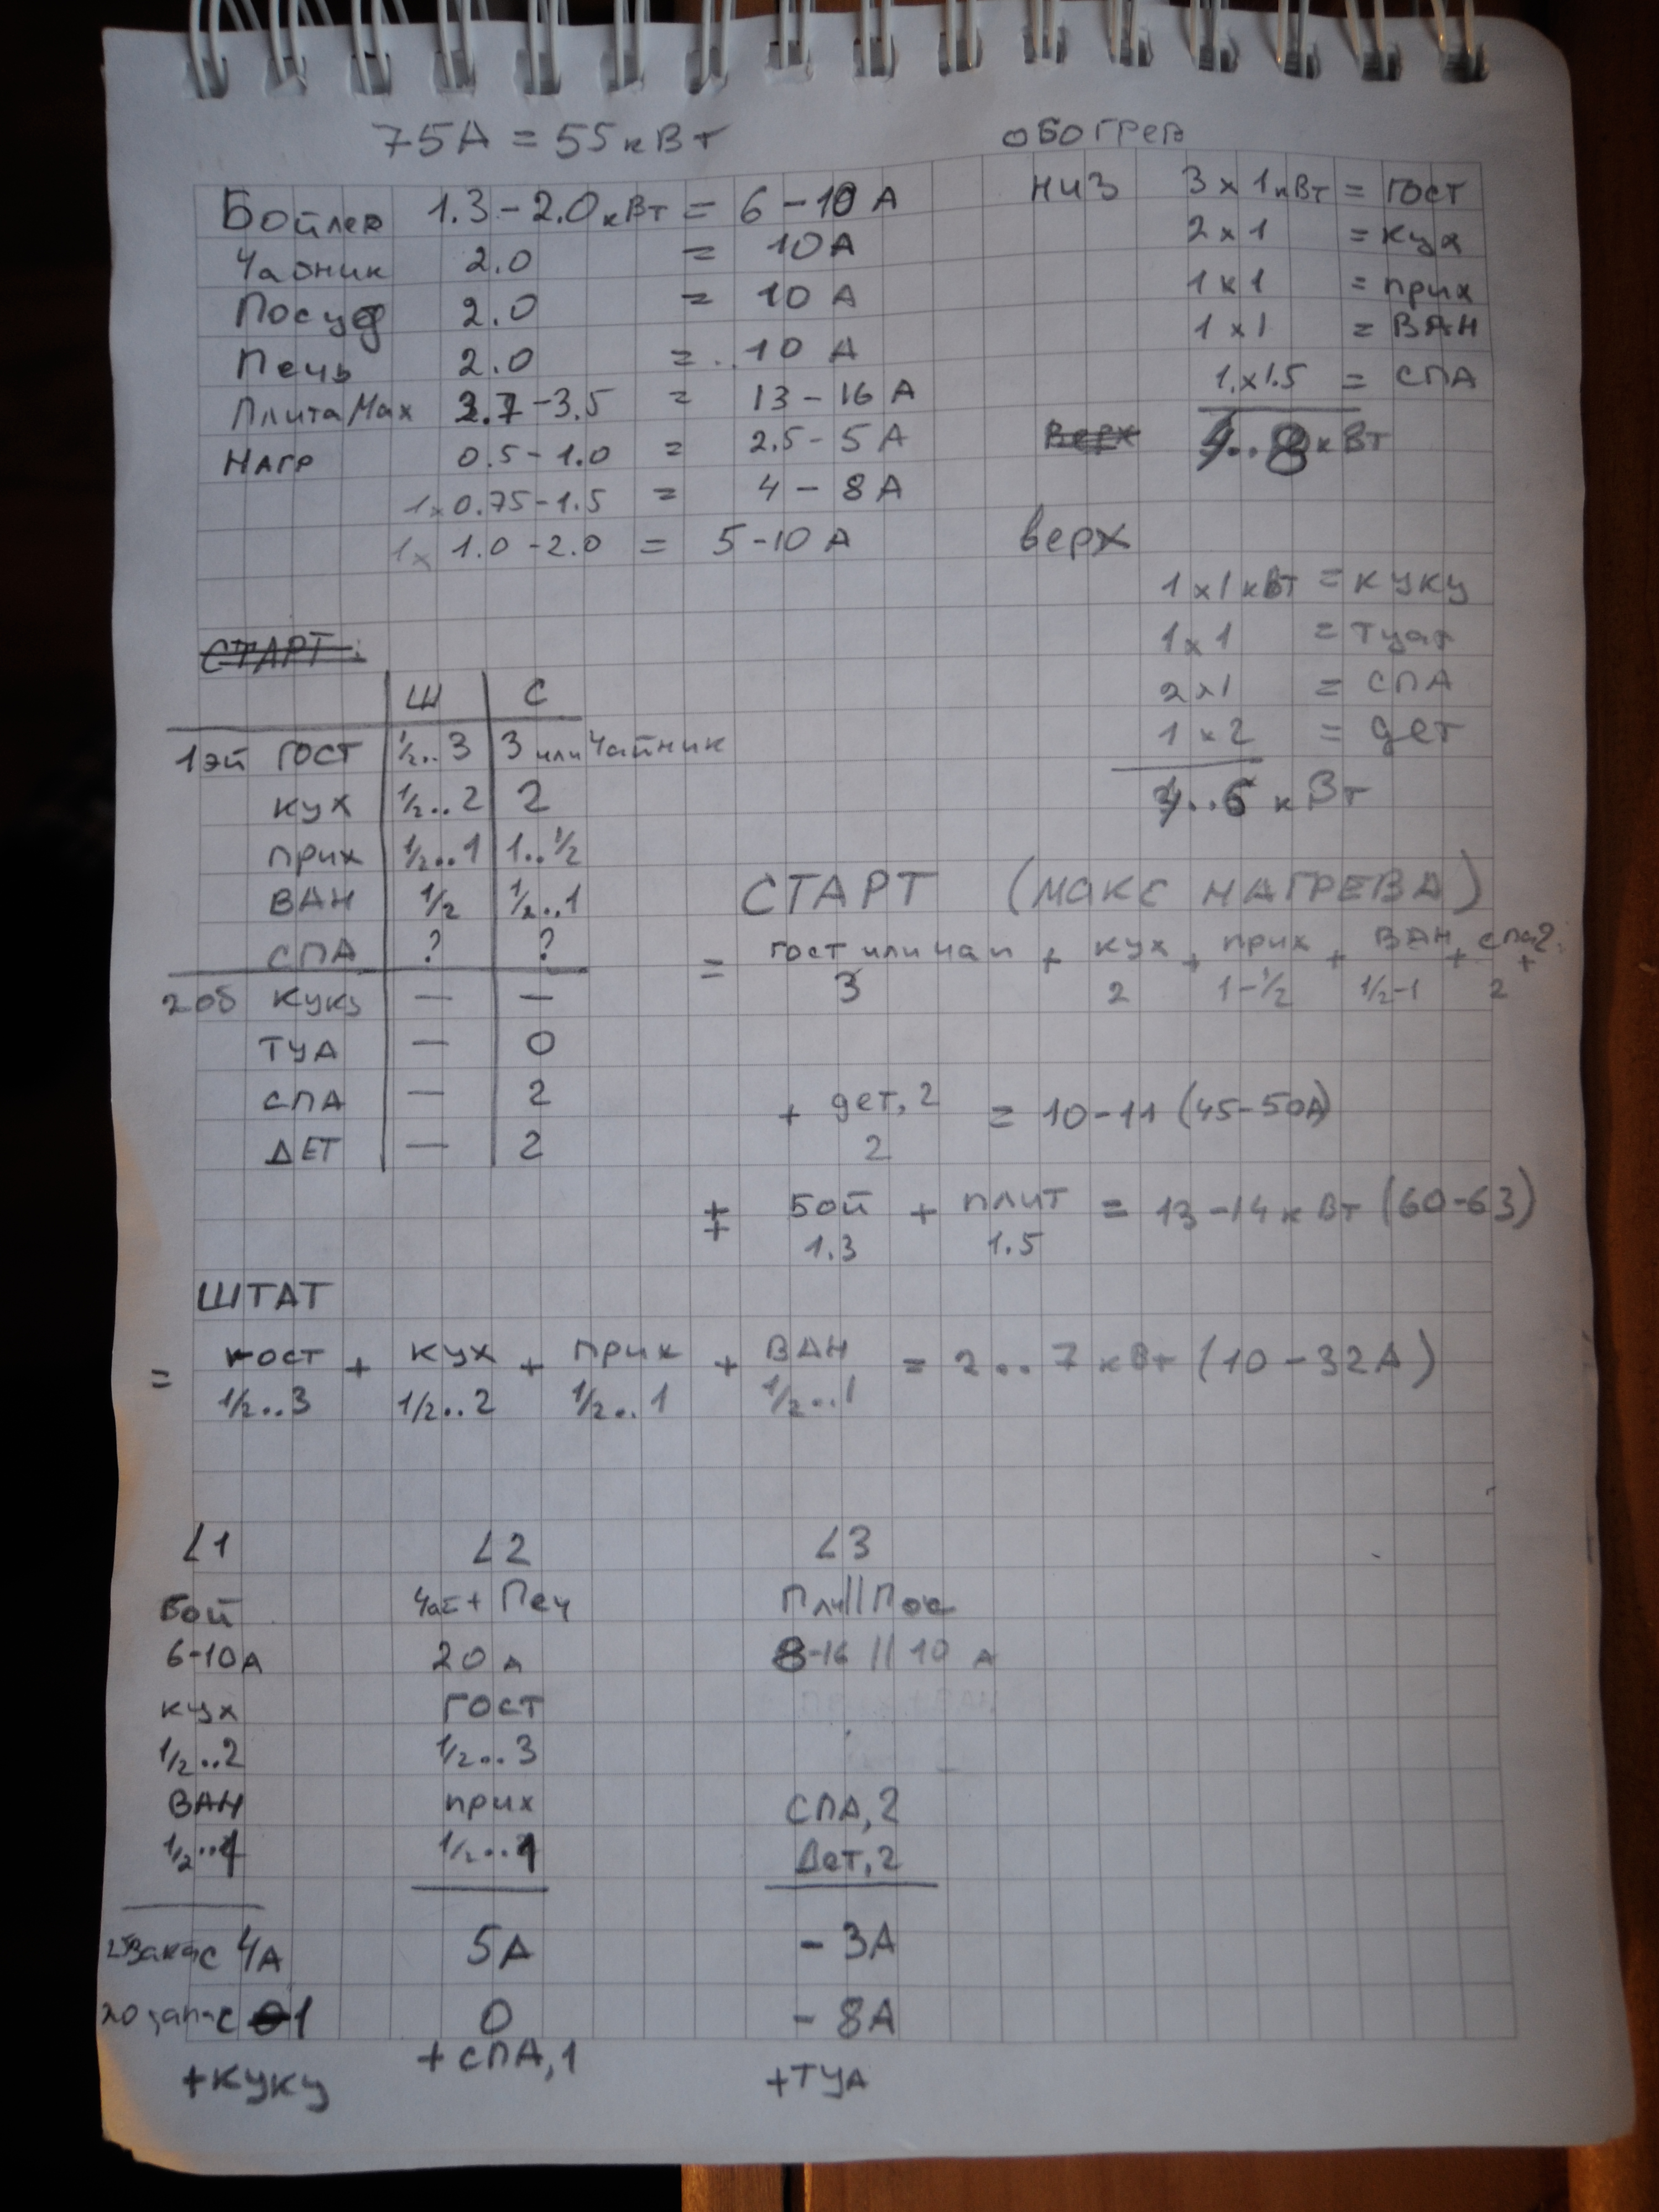 75А = 55 кВт
Бойлер 1.3 - 2.0 кВт = 6 - 10 А
Чайник 2.0 = 10А
Посуд 2.0 = 10 А
Печь 2.0 = 10 А
Плита Мах 2.7 - 3.5 = 13 - 16 А
НАГР 0.5 - 1.0 = 2.5 - 5 А
1x 0.75 - 1.5 = 4 - 8 А
1x 1.0 - 2.0 = 5 - 10 А
ОБОГРЕВ
НИЗ 3 x 1 кВт = ГОСТ
2 x 1 = кух
1 x 1 = прих
1 x 1 = ВАН
1 x 1.5 = СПА
Верх ..8 кВт
верх
1 x 1 кВт = куку
1 x 1 = туал
2 x 1 = СПА
1 x 2 = дет
..6 кВт
СТАРТ:
Ш С
1эй ГОСТ 1/2..3 3 или Чайник
кух 1/2..2 2
прих 1/2..1 1..1/2
ВАН 1/2 1/2..1
СПА ? ?
2об куку — —
ТУА — 0
СПА — 2
ДЕТ — 2
СТАРТ (МАКС НАГРЕВА)
= гост или чай + кух + прих + ВАН + спа2 +
3 2 1-1/2 1/2-1 2
+ дет,2 = 10-11 (45-50А)
2
+ + Бой + плит = 13-14 кВт (60-63)
1.3 1.5
ШТАТ
= гост + кух + прих + ВАН = 2..7 кВт (10-32А)
1/2..3 1/2..2 1/2..1 1/2..1
L1 L2 L3
Бой Чай + Печ Пли||Пос
6-10А 20 А 8-16 || 10 А
кух ГОСТ
1/2..2 1/2..3
ВАН прих СПА,2
1/2..1 1/2..1 Дет,2
25 запас 4А 5А - 3А
20 запас 1 0 - 8А
+куку + СПА,1 +ТУА